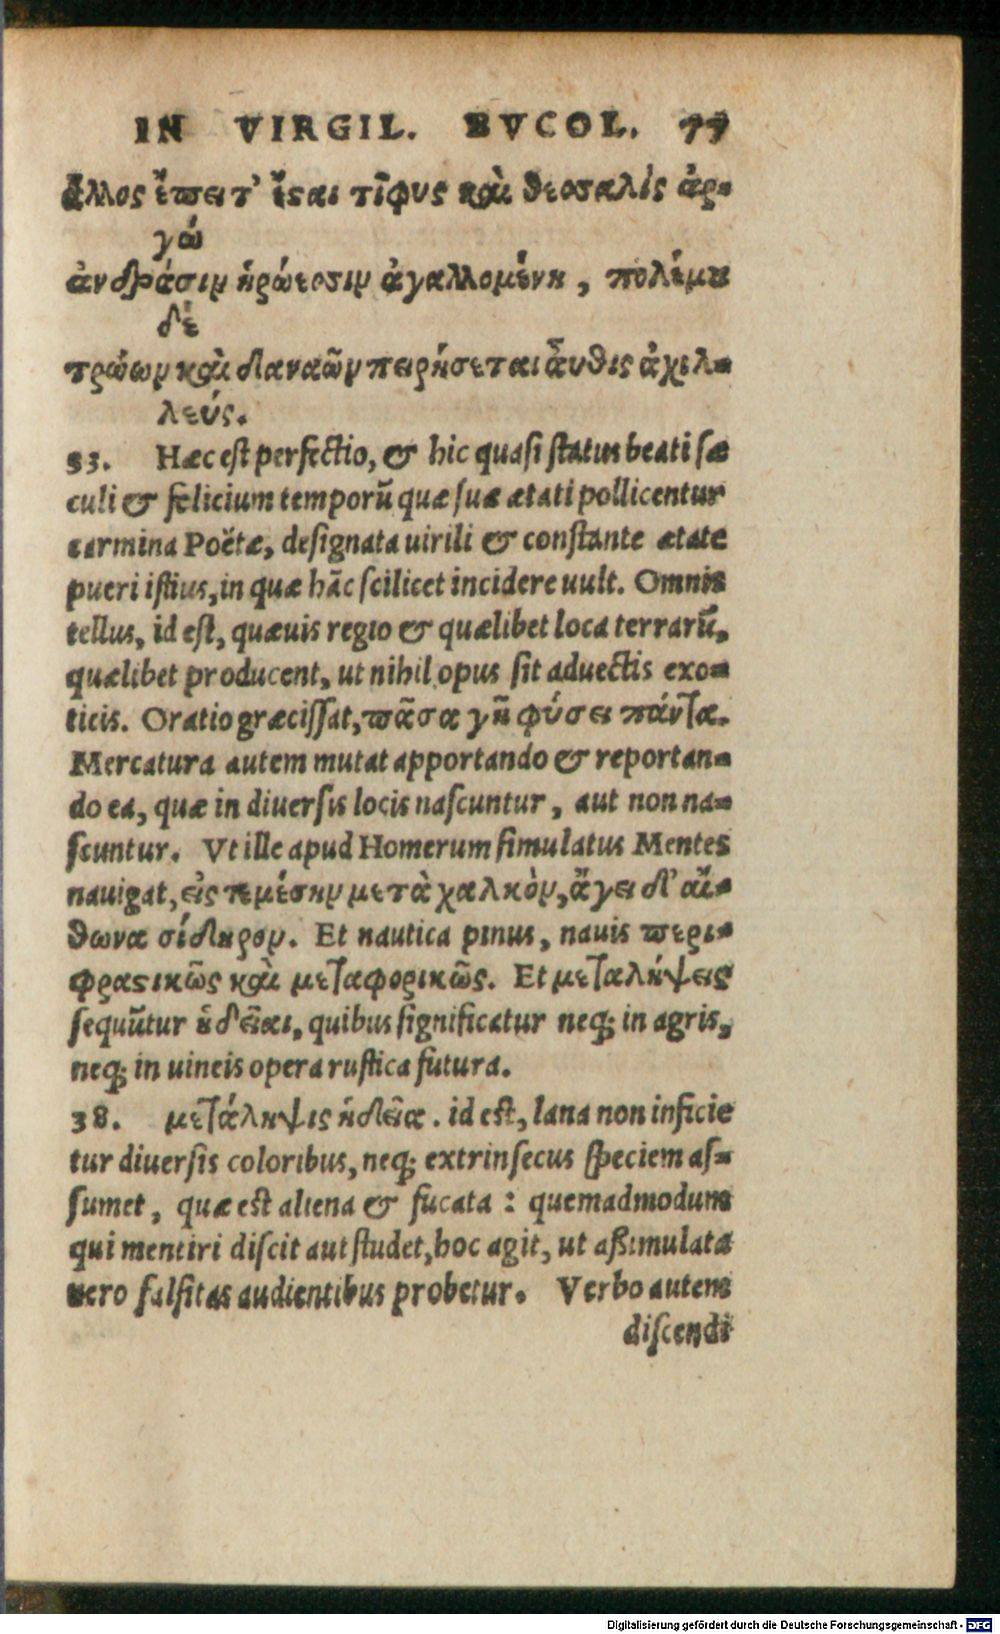 IN VIRGIL. BVCOL. 77
ἄλλος ἔπειτ' ἔςαι τῖφυς καὶ θεσσαλὶς ἀρ-
γώ
ἀνδράσιν ἡρώεσσιν ἀγαλλομένη, πολέμου
δὲ
τρώων καὶ δαναῶν πειρήσεται αὖθις ἀχιλ-
λεύς.
53. Hæc est perfectio, & hic quasi status beati sæ
culi & felicium temporũ quæ suæ ætati pollicentur
carmina Poëtæ, designata uirili & constante ætate
pueri istius, in quæ hãc scilicet incidere uult. Omnis
tellus, id est, quæuis regio & quælibet loca terrarũ,
quælibet producent, ut nihil opus sit aduectis exo-
ticis. Oratio græcissat, πᾶσα γῆ φύσει πάντα.
Mercatura autem mutat apportando & reportan-
do ea, quæ in diuersis locis nascuntur, aut non na-
scuntur. Vt ille apud Homerum simulatus Mentes
nauigat, εἰς τεμέσην μετὰ χαλκὸν, ἄγει δ' αἴ-
θωνα σίδηρον. Et nautica pinus, nauis περι-
φραςικῶς καὶ μεταφορικῶς. Et μεταλήψεις
sequũtur ἡδεῖαι, quibus significatur neq; in agris,
neq; in uineis opera rustica futura.
38. μετάληψις ἡδεῖα. id est, lana non inficie
tur diuersis coloribus, neq; extrinsecus speciem as-
sumet, quæ est aliena & fucata: quemadmodum
qui mentiri discit aut studet, hoc agit, ut aßimulata
uero falsitas audientibus probetur. Verbo autem
discendi
Digitalisierung gefördert durch die Deutsche Forschungsgemeinschaft - DFG